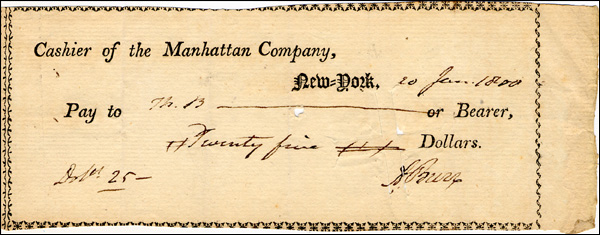 Cashier of the Manhattan Company,
New-York, 20 Jan. 1800
Pay to Th. B or Bearer,
Twenty five Dollars.
Dolrs 25 — A Burr